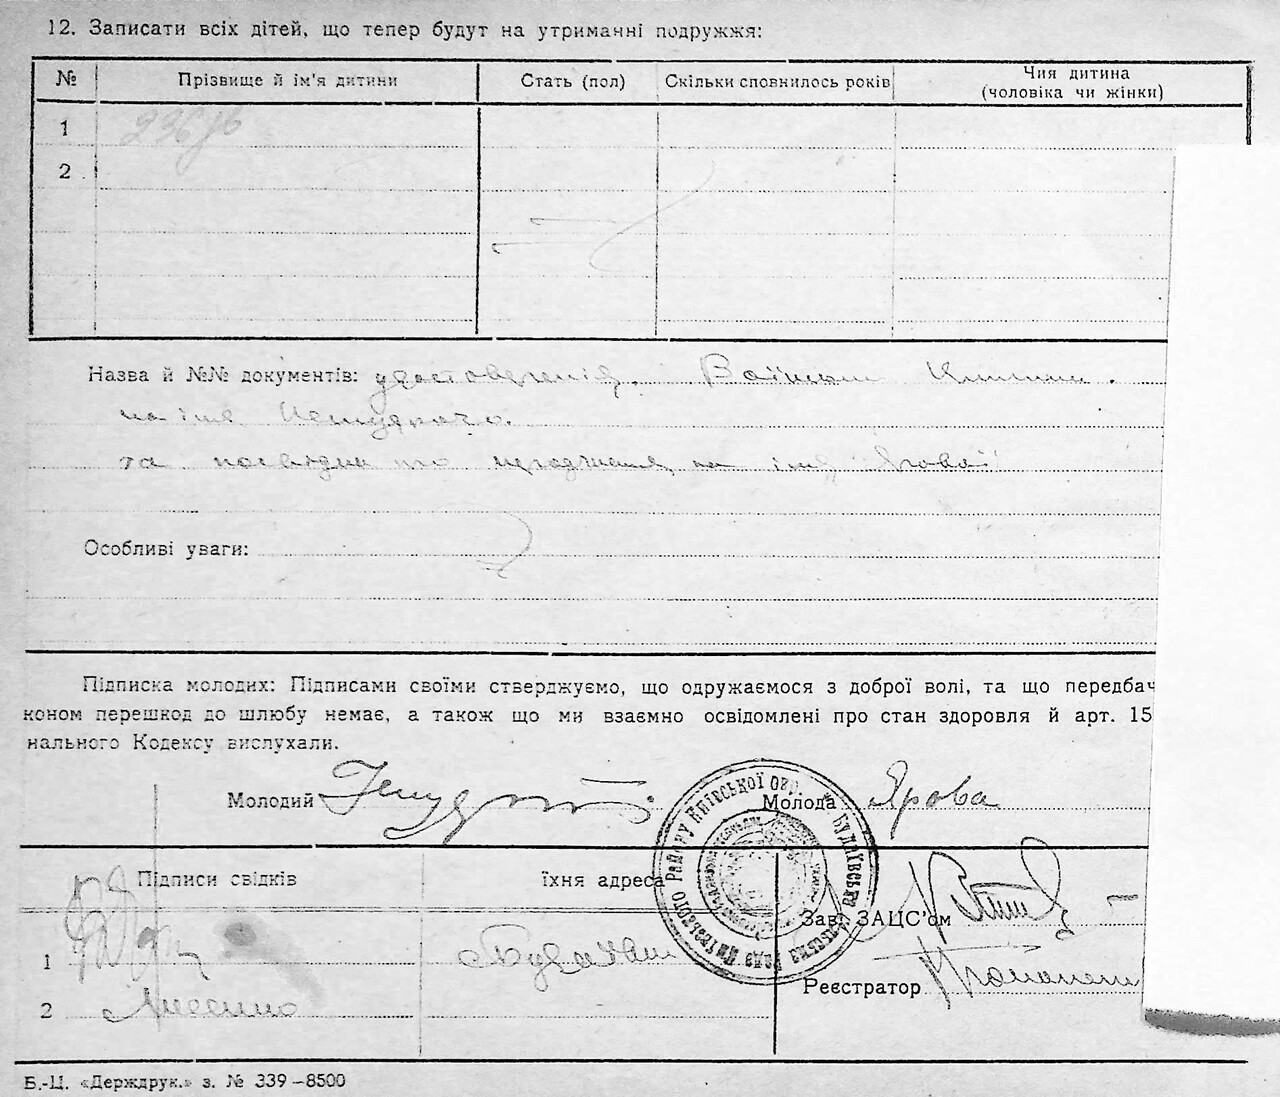 12. Записати всіх дітей, що тепер будут на утриманні подружжя:
№ Прізвище й ім'я дитини Стать (пол) Скільки сповнилось років Чия дитина
(чоловіка чи жінки)
1
2
Назва й №№ документів: удостоверенія.
на імя
та посвідка про народження на імя Ярової
Особливі уваги:
Підписка молодих: Підписами своїми стверджуємо, що одружаємося з доброї волі, та що передбач
коном перешкод до шлюбу немає, а також що ми взаємно освідомлені про стан здоровля й арт. 15
нального Кодексу вислухали.
Молодий Молода Ярова
Підписи свідків їхня адреса
Зав. ЗАЦС'ом
1
Реєстратор
2 Лисенко
Району Київської окр.
Б.-Ц. «Держдрук.» з. № 339–8500